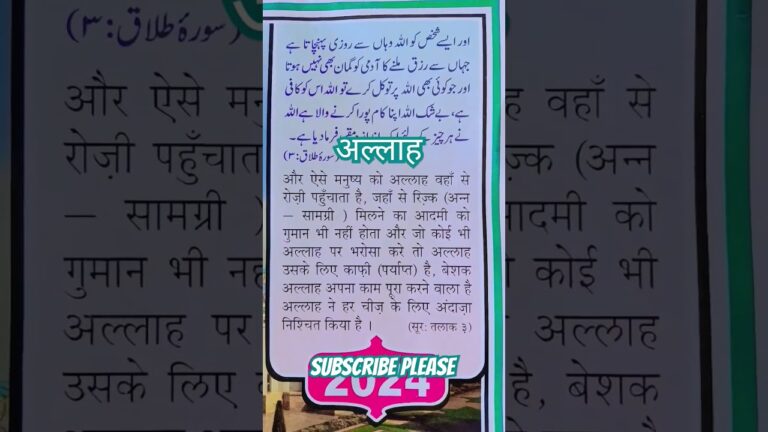 اور ایسے شخص کو اللہ وہاں سے روزی پہنچاتا ہے
جہاں سے رزق ملنے کا آدمی کو گمان بھی نہیں ہوتا
اور جو کوئی بھی اللہ پر توکل کرے تو اللہ اس کو کافی
ہے، بے شک اللہ اپنا کام پورا کرنے والا ہے اللہ
نے ہر چیز فرما دیا ہے۔
(سورۂ طلاق:۳)
अल्लाह
और ऐसे मनुष्य को अल्लाह वहाँ से
रोज़ी पहुँचाता है, जहाँ से रिज़्क (अन्न
– सामग्री ) मिलने का आदमी को
गुमान भी नहीं होता और जो कोई भी
अल्लाह पर भरोसा करे तो अल्लाह
उसके लिए काफी (पर्याप्त) है, बेशक
अल्लाह अपना काम पूरा करने वाला है
अल्लाह ने हर चीज़ के लिए अंदाज़ा
निश्चित किया है ।
(सूर: तलाक ३)
SUBSCRIBE PLEASE
2024
(سورۂ طلاق:۳)
और ऐसे मनु
वहाँ से
रोज़ी पहुँचात
रिज़्क (अन्न
– सामग्री
आदमी को
गुमान भी नह
कोई भी
अल्लाह पर
अल्लाह
उसके लिए
है, बेशक